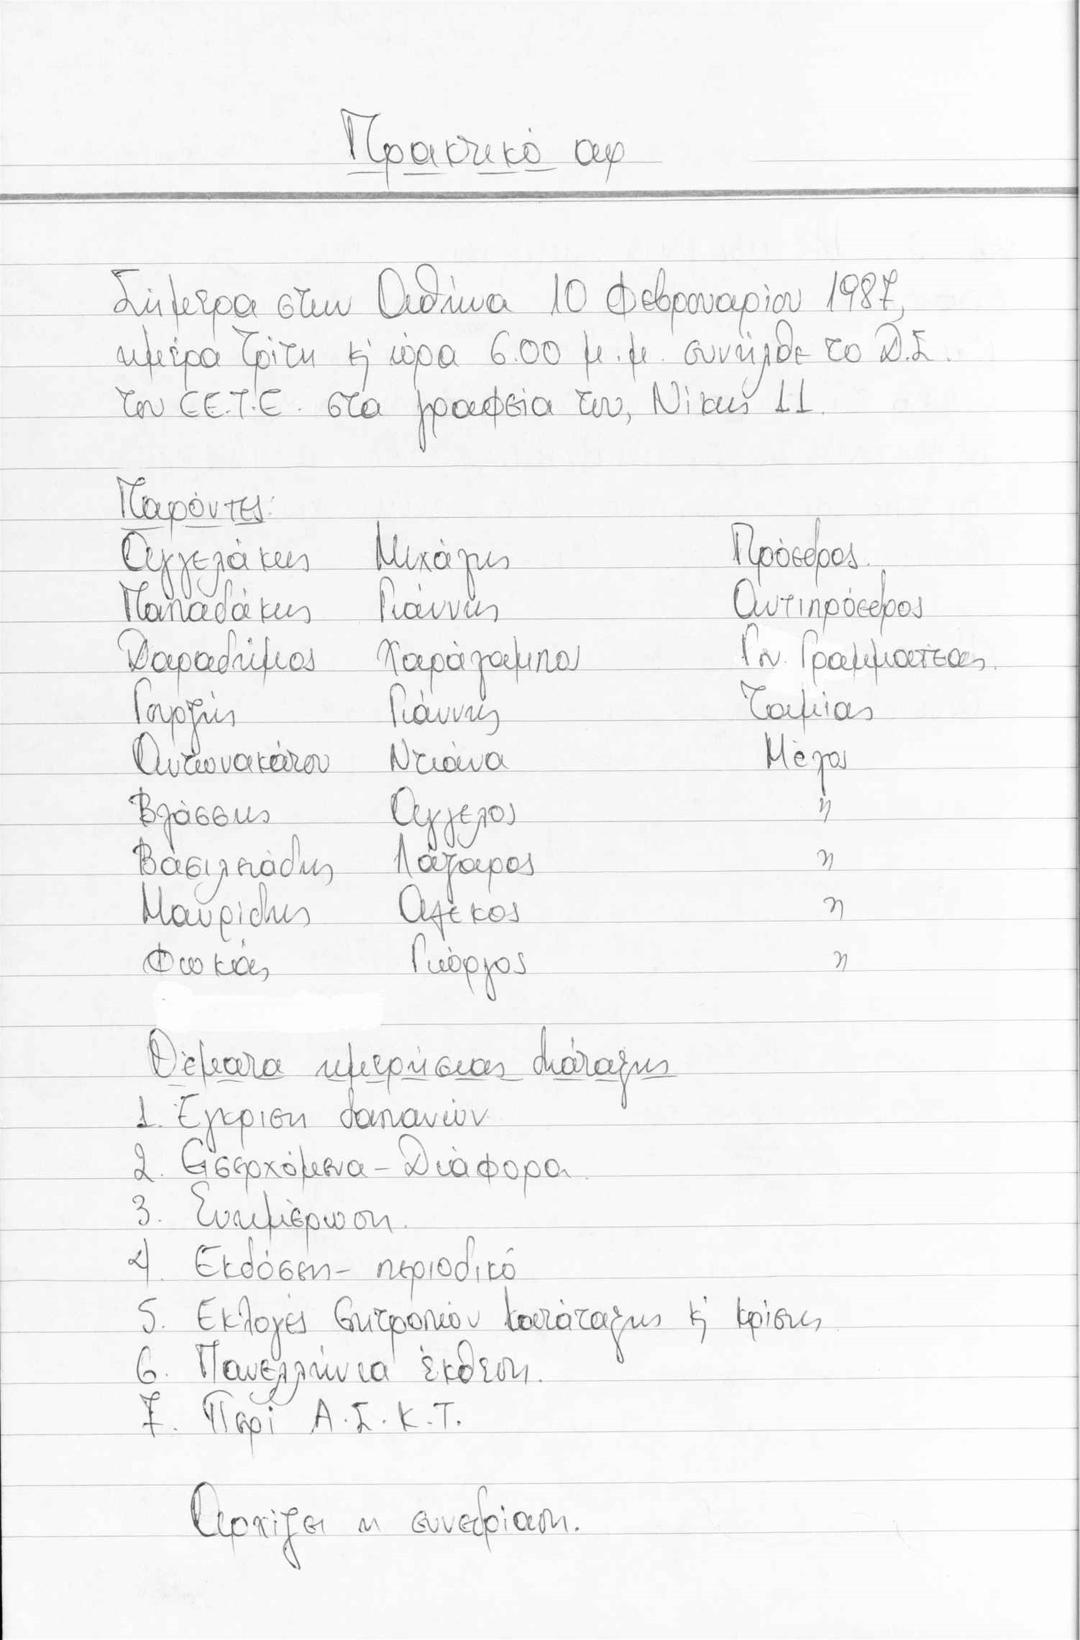 Πρακτικό αρ
Σήμερα στην Αθήνα 10 Φεβρουαρίου 1987,
ημέρα Τρίτη κ' ώρα 6.00 μ.μ. συνήλθε το Δ.Σ.
του Ε.Ε.Τ.Ε. στα γραφεία του, Νίκης 11.
Παρόντες:
Αγγελάκης Μιχάλης Πρόεδρος.
Παπαδάκης Γιάννης Αντιπρόεδρος
Δαραδήμος Χαράλαμπος Γεν. Γραμματέας.
Γουρζής Γιάννης Ταμίας
Αντωνακάτου Ντιάνα Μέλος
Βλάσσης Άγγελος "
Βασιλειάδης Λάζαρος "
Μαυρίδης Αλέκος "
Φωκάς Γιώργος "
Θέματα ημερήσιας διάταξης
1. Έγκριση δαπανών
2. Εισερχόμενα - Διάφορα
3. Ενημέρωση.
4. Εκδόση - περιοδικό
5. Εκλογές Επιτροπών κατάταξης κ' κρίσης
6. Πανελλήνια έκθεση.
7. Περί Α.Σ.Κ.Τ.
Αρχίζει η συνεδρίαση.